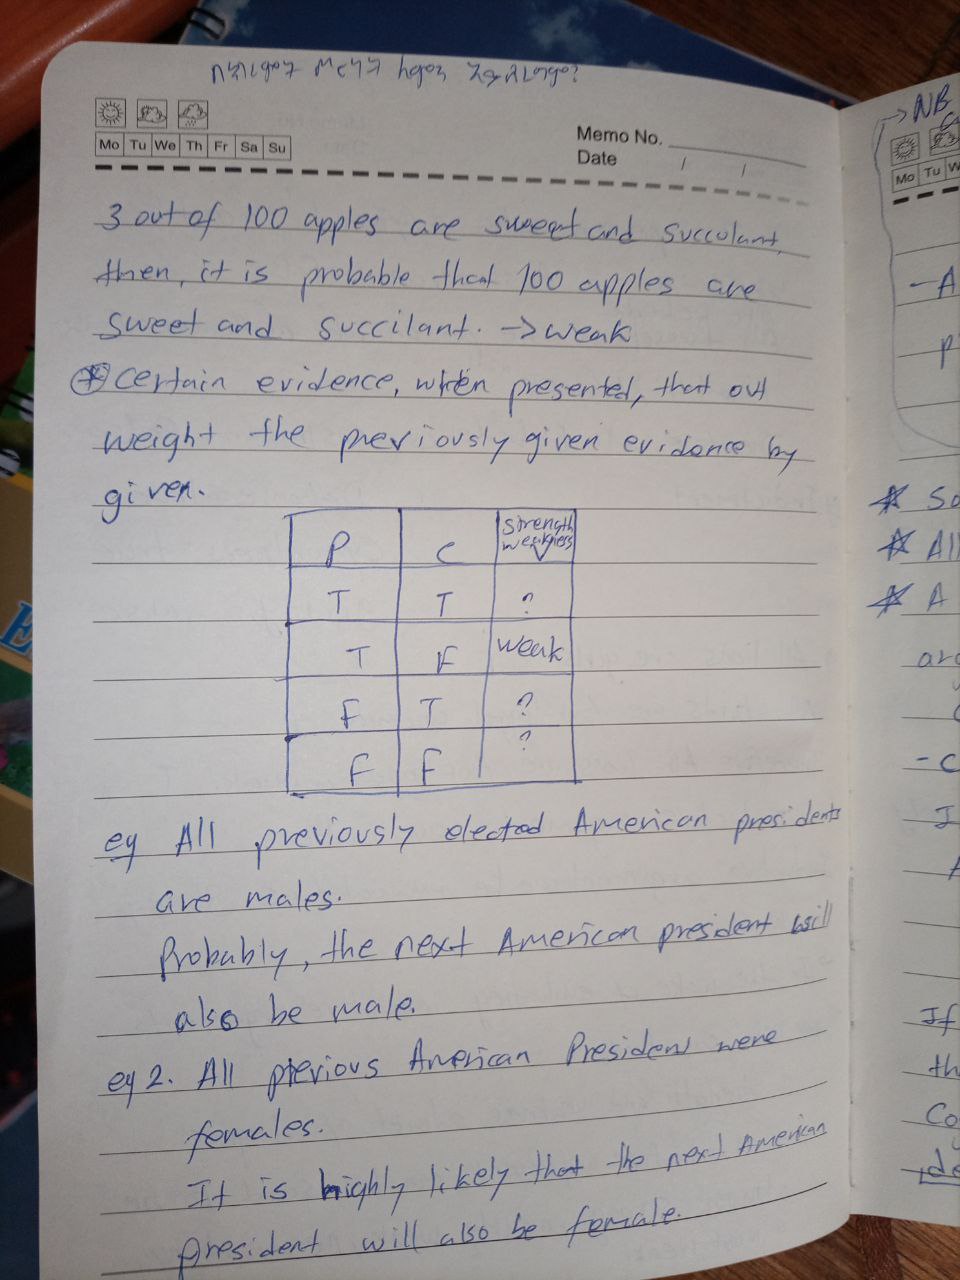 Mo Tu We Th Fr Sa Su
Memo No.
Date / /
3 out of 100 apples are sweet and succulant,
then, it is probable that 100 apples are
sweet and succilant. → weak
* Certain evidence, when presented, that out
weight the previously given evidence by
given.
P C strength weakness
T T ?
T F weak
F T ?
F F ?
eg All previously elected American presidents
are males.
Probably, the next American president will
also be male.
eg 2. All previous American Presidens were
females.
It is highly likely that the next American
president will also be female.
→ NB
Mo Tu W
- A
p
* So
* All
* A
- C
I
If
th
Co